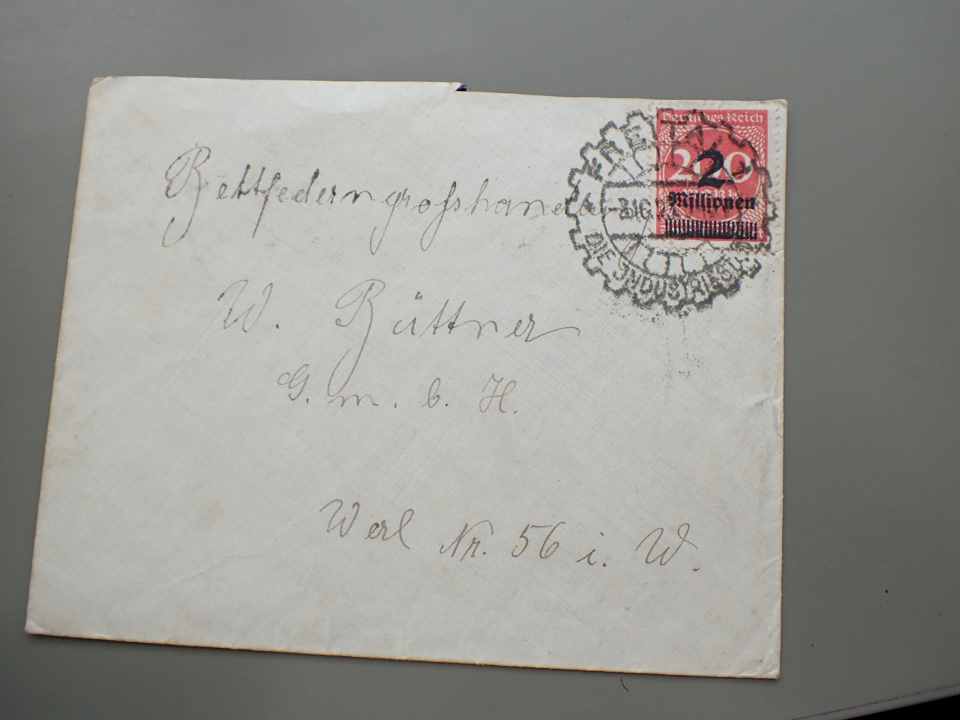 Deutsches Reich
200
2
Millionen
DIE INDUSTRIEST
Bettfederngrosshandlung
W. Büttner
G. m. b. H.
Werl Nr. 56 i. W.